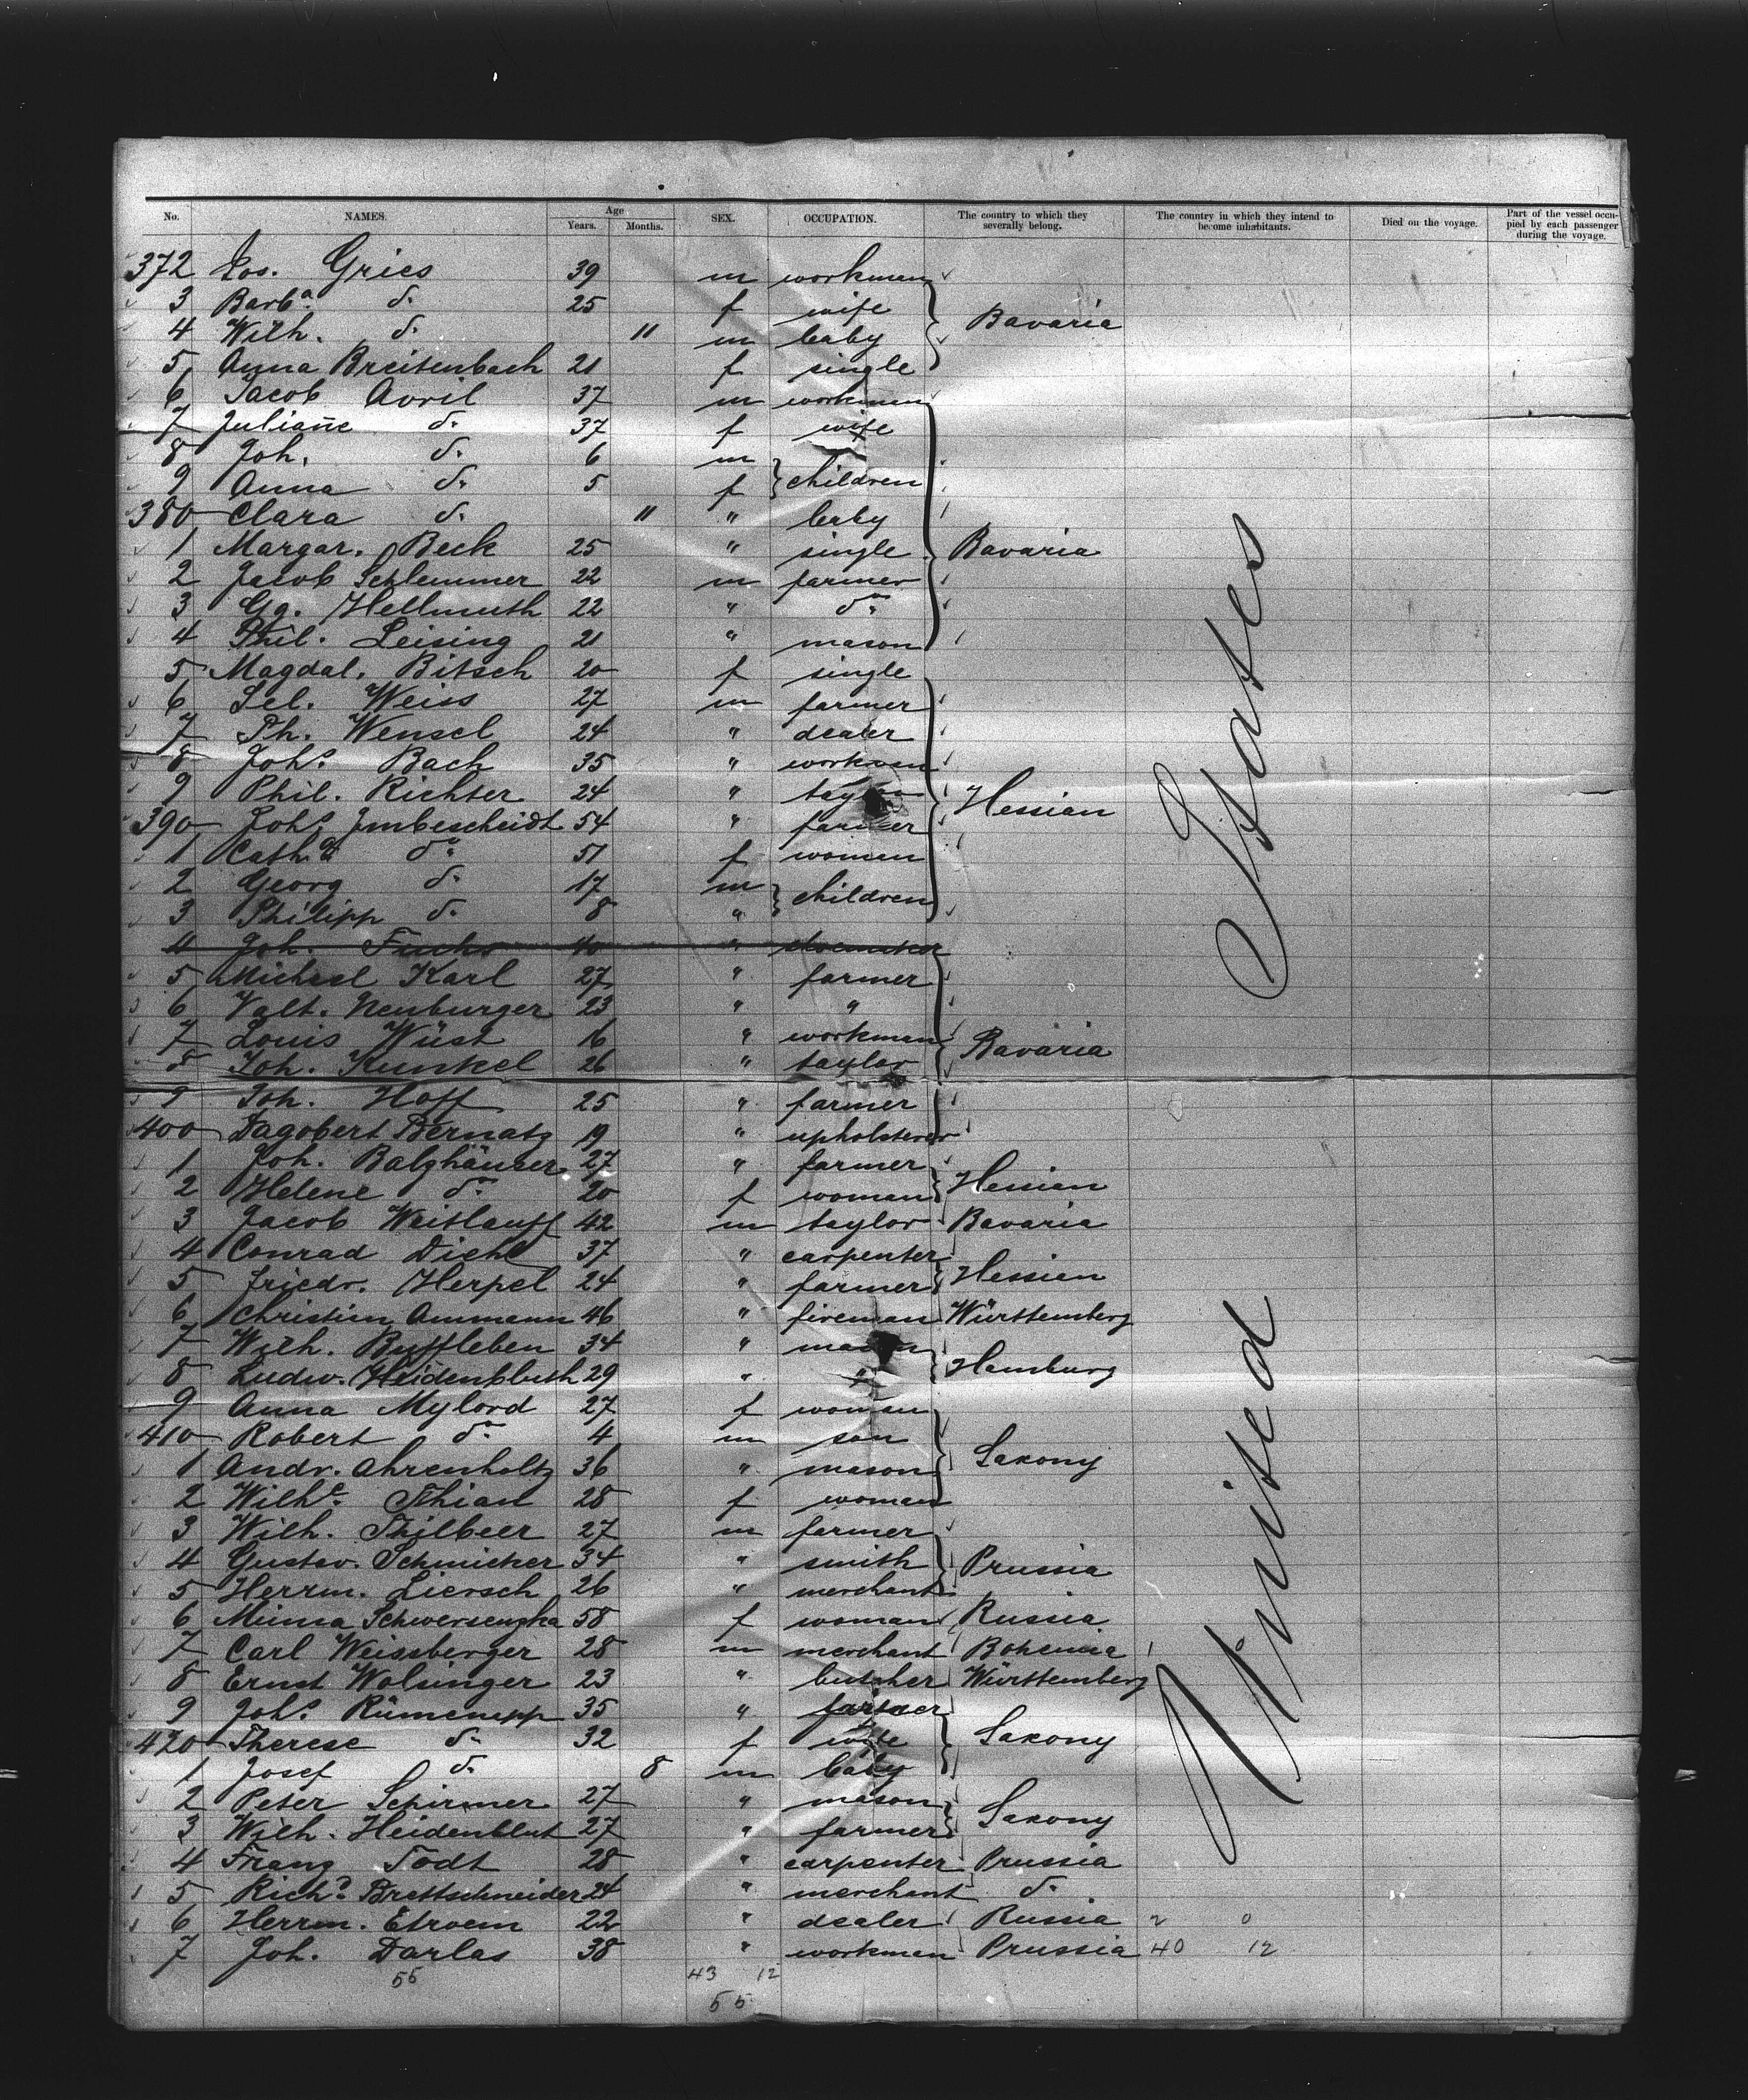 No. NAMES. Age Years. Months. SEX. OCCUPATION. The country to which they severally belong. The country in which they intend to become inhabitants. Died on the voyage. Part of the vessel occupied by each passenger during the voyage.
372 Jos. Gries 39 m workman
3 Barbª. d. 25 f wife
4 Wilh. d. 11 m baby Bavaria
5 Anna Breitenbach 21 f single
6 Jacob Avril 37 m workman
7 Juliañe d. 37 f wife
8 Joh. d. 6 m
9 Anna d. 5 f children
380 Clara d. 11 " baby
1 Margar. Beck 25 " single Bavaria
2 Jacob Schlemmer 22 m farmer
3 Gg. Hellmuth 22 " do.
4 Phil. Leising 21 " mason
5 Magdal. Bitsch 20 f single
6 Sel. Weiss 27 m farmer
7 Ph. Wensel 24 " dealer
8 Johs. Bach 35 " workman
9 Phil. Richter 24 "
390 Johs. Imbescheidt 54 " farmer Hessian
1 Catha. do. 51 f women
2 Georg d. 17 m children
3 Philipp d. 8 "
4 Joh. Fuchs 40 " shoemaker
5 Michael Karl 27 " farmer
6 Valt. Neuburger 23 " "
7 Louis Wüst 16 " workman
8 Joh. Kunkel 26 " taylor Bavaria
9 Joh. Hoff 25 " farmer
400 Dagobert Bernatz 19 " upholsterer
1 Joh. Balghäuser 27 " farmer
2 Helene do. 20 f woman Hessian
3 Jacob Weitlauff 42 m taylor Bavaria
4 Conrad Diehl 37 " carpenter
5 Friedr. Herpel 24 " farmer Hessian
6 Christian Ammann 46 " fireman Württemberg
7 Wilh. Buffleben 34 " mason
8 Ludw. Heidenbluth 29 " " Hamburg
9 Anna Mylord 27 f woman
410 Robert do. 4 m son
1 Andr. Ahrenholtz 36 " mason Saxony
2 Wilhe. Thian 28 f woman
3 Wilh. Thilbeer 27 m farmer
4 Gustav. Schmicker 34 " smith Prussia
5 Herrm. Liersch 26 " merchant
6 Minna Schwersenzka 58 f woman Russia
7 Carl Weissberger 28 m merchant Bohemia
8 Ernst Wolsinger 23 " butcher Württemberg
9 Johs. Rümenapp 35 " farmer
420 Therese d. 32 f wife Saxony
1 Josef d. 8 m baby
2 Peter Schirmer 27 " mason
3 Wilh. Heidenblut 27 " farmer Saxony
4 Franz Todt 28 " carpenter Prussia
5 Richd. Brettschneider 24 " merchant d.
6 Herrm. Etroem 22 " dealer Russia 2 0
7 Joh. Darlas 38 " workman Prussia 40 12
55 43 12
55
United States